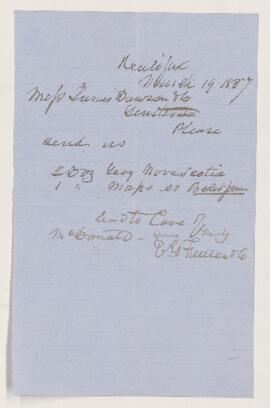 Halifax
March 19 1857
Mess James Dawson & Co
Gentlemen
Please
send us
2 Doz Geog Nova Scotia
1 " Maps do Pocket form
Send to Care of
McDonald - yours truly
E G Fuller & Co